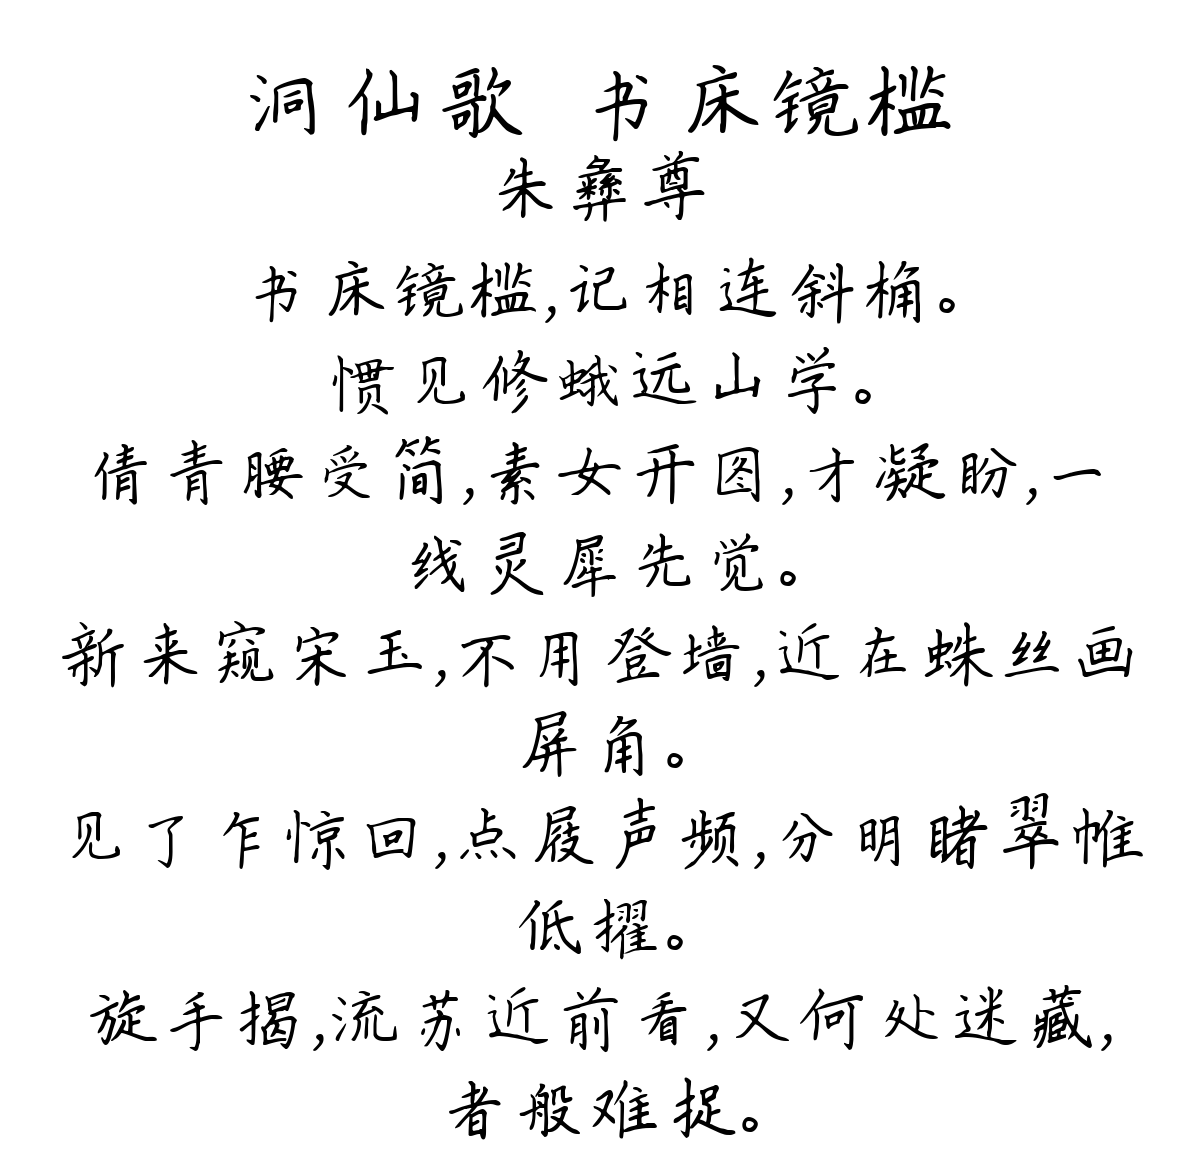 洞仙歌 书床镜槛
朱彝尊
书床镜槛,记相连斜桷。
惯见修蛾远山学。
倩青腰受简,素女开图,才凝盼,一
线灵犀先觉。
新来窥宋玉,不用登墙,近在蛛丝画
屏角。
见了乍惊回,点屐声频,分明睹翠帷
低擢。
旋手揭,流苏近前看,又何处迷藏,
者般难捉。